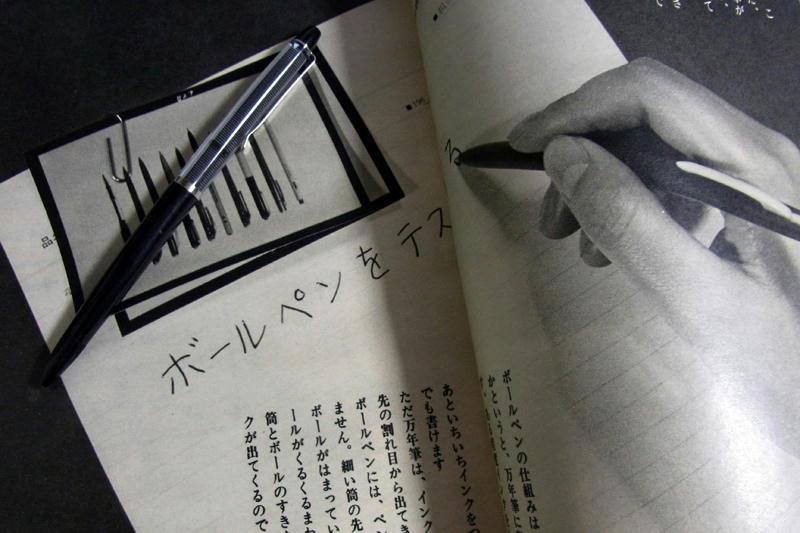 ボールペンを テス
る
ボールペンの仕組みは
かというと、万年筆に
あといちいちインクをつ
でも書けます
ただ万年筆は、インク
先の割れ目から出てき
ボールペンには、ペン
ません。細い筒の先
ボールがはまってい
ールがくるくるまわ
筒とボールのすき
クが出てくるので